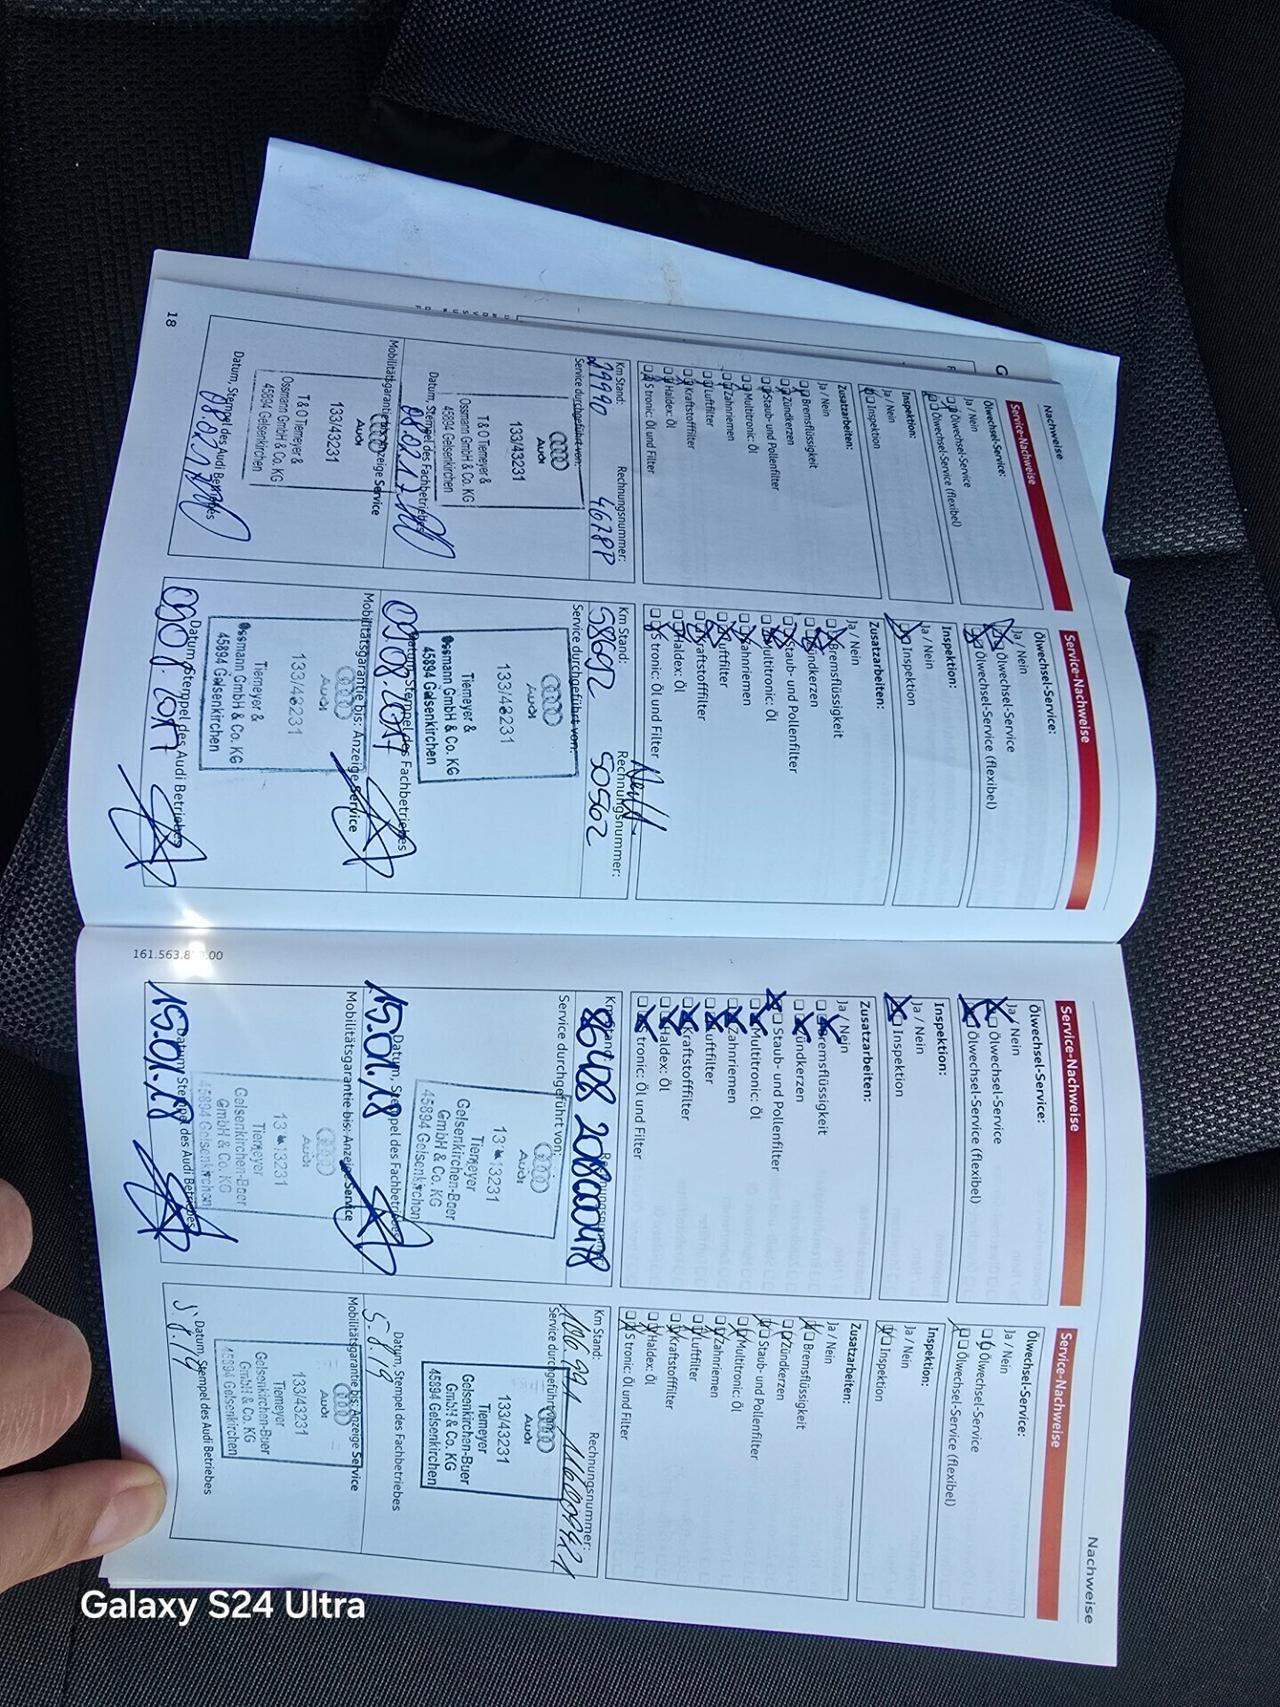 Nachweise
Service-Nachweise
Ölwechsel-Service:
Ja / Nein
Ölwechsel-Service
Ölwechsel-Service (flexibel)
Inspektion:
Ja / Nein
Inspektion
Zusatzarbeiten:
Ja / Nein
Bremsflüssigkeit
Zündkerzen
Staub- und Pollenfilter
Multitronic: Öl
Zahnriemen
Luftfilter
Kraftstofffilter
Haldex: Öl
S tronic: Öl und Filter
Km Stand: Rechnungsnummer:
29990
Service durchgeführt von:
Audi
133/43231
T & O Tiemeyer &
Ossmann GmbH & Co. KG
45894 Gelsenkirchen
Datum, Stempel des Fachbetriebes
08.02.17
Mobilitätsgarantie bis: Anzeige Service
Audi
133/43231
T & O Tiemeyer &
Ossmann GmbH & Co. KG
45894 Gelsenkirchen
Datum, Stempel des Audi Betriebes
08.02.17
18
Service-Nachweise
Ölwechsel-Service:
Ja / Nein
Ölwechsel-Service
Ölwechsel-Service (flexibel)
Inspektion:
Ja / Nein
Inspektion
Zusatzarbeiten:
Ja / Nein
Bremsflüssigkeit
Zündkerzen
Staub- und Pollenfilter
Multitronic: Öl
Zahnriemen
Luftfilter
Kraftstofffilter
Haldex: Öl
S tronic: Öl und Filter
Km Stand: Rechnungsnummer:
58692 50562
Service durchgeführt von:
Audi
133/43231
Tiemeyer &
Ossmann GmbH & Co. KG
45894 Gelsenkirchen
Datum, Stempel des Fachbetriebes
09.08.2017
Mobilitätsgarantie bis: Anzeige Service
Audi
133/43231
Tiemeyer &
Ossmann GmbH & Co. KG
45894 Gelsenkirchen
Datum, Stempel des Audi Betriebes
09.08.2017
Service-Nachweise
Ölwechsel-Service:
Ja / Nein
Ölwechsel-Service
Ölwechsel-Service (flexibel)
Inspektion:
Ja / Nein
Inspektion
Zusatzarbeiten:
Ja / Nein
Bremsflüssigkeit
Zündkerzen
Staub- und Pollenfilter
Multitronic: Öl
Zahnriemen
Luftfilter
Kraftstofffilter
Haldex: Öl
S tronic: Öl und Filter
Km Stand: Rechnungsnummer:
Service durchgeführt von:
Audi
13 43231
Tiemeyer
Gelsenkirchen-Buer
GmbH & Co. KG
45894 Gelsenkirchen
Datum, Stempel des Fachbetriebes
15.01.18
Mobilitätsgarantie bis: Anzeige Service
Audi
13 43231
Tiemeyer
Gelsenkirchen-Buer
GmbH & Co. KG
45894 Gelsenkirchen
Datum, Stempel des Audi Betriebes
15.01.18
161.563.8 .00
Nachweise
Service-Nachweise
Ölwechsel-Service:
Ja / Nein
Ölwechsel-Service
Ölwechsel-Service (flexibel)
Inspektion:
Ja / Nein
Inspektion
Zusatzarbeiten:
Ja / Nein
Bremsflüssigkeit
Zündkerzen
Staub- und Pollenfilter
Multitronic: Öl
Zahnriemen
Luftfilter
Kraftstofffilter
Haldex: Öl
S tronic: Öl und Filter
Km Stand: Rechnungsnummer:
106.991
Service durchgeführt von:
Audi
133/43231
Tiemeyer
Gelsenkirchen-Buer
GmbH & Co. KG
45894 Gelsenkirchen
Datum, Stempel des Fachbetriebes
5.8.19
Mobilitätsgarantie bis: Anzeige Service
Audi
133/43231
Tiemeyer
Gelsenkirchen-Buer
GmbH & Co. KG
45894 Gelsenkirchen
Datum, Stempel des Audi Betriebes
5.8.19
Galaxy S24 Ultra